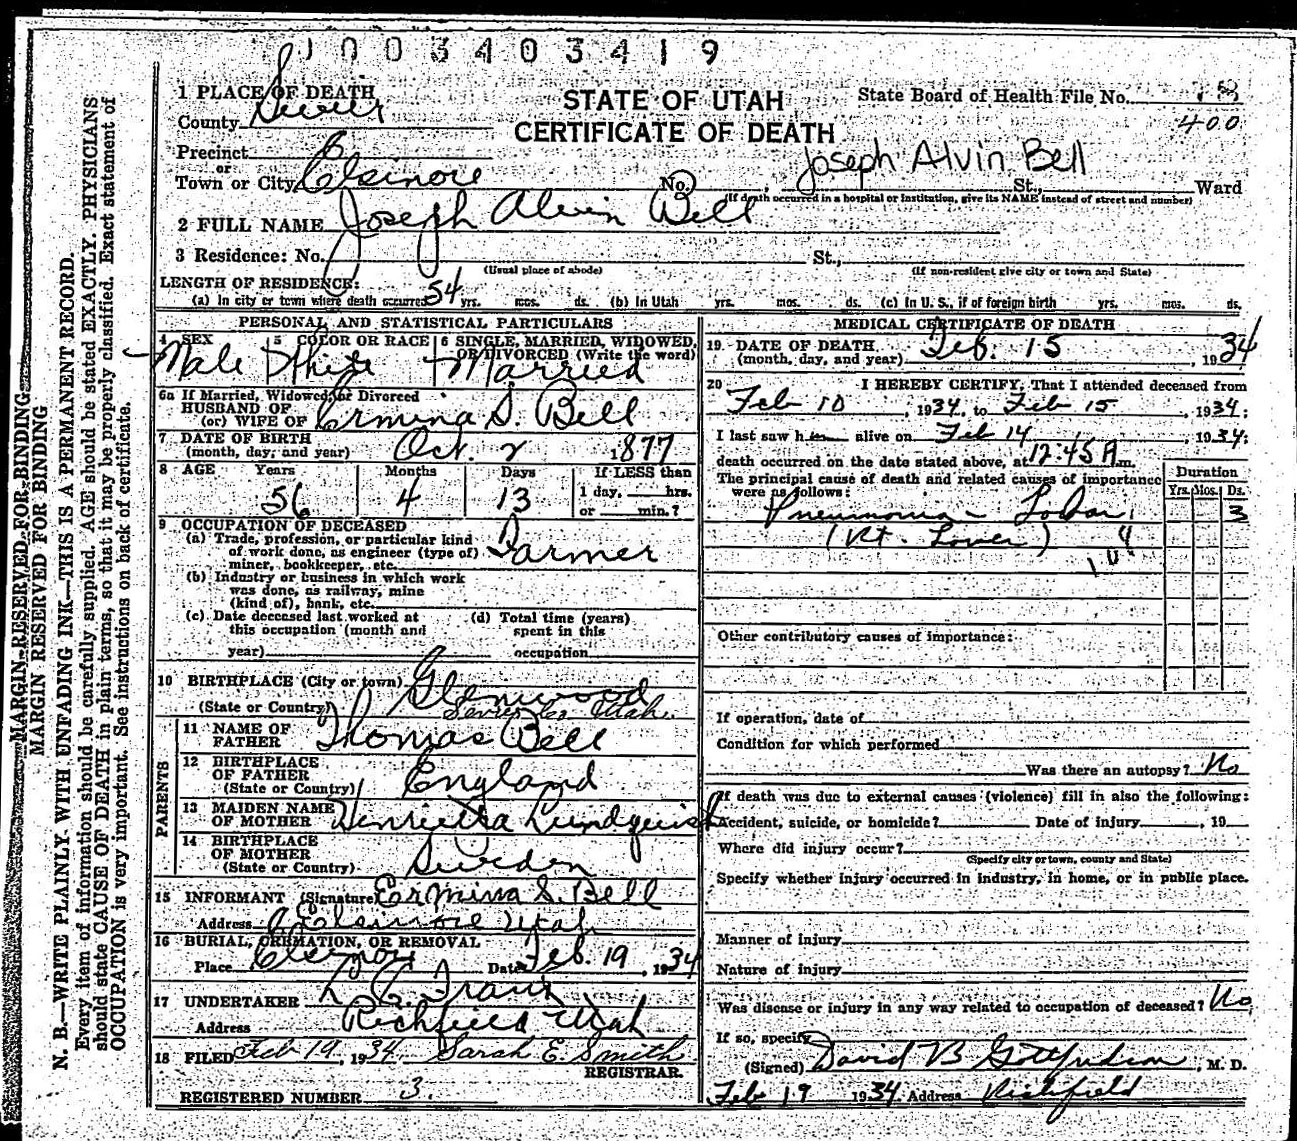 1003403419
1 PLACE OF DEATH
County Sevier
STATE OF UTAH
CERTIFICATE OF DEATH
State Board of Health File No.
400
Precinct
or
Town or City Elsinore No. , Joseph Alvin Bell St., Ward
(If death occurred in a hospital or institution, give its NAME instead of street and number)
2 FULL NAME Joseph Alvin Bell
3 Residence: No. St.,
(Usual place of abode) (If non-resident give city or town and State)
LENGTH OF RESIDENCE:
(a) In city or town where death occurred 54 yrs. mos. ds. (b) In Utah yrs. mos. ds. (c) In U. S., if of foreign birth yrs. mos. ds.
PERSONAL AND STATISTICAL PARTICULARS
4 SEX 5 COLOR OR RACE 6 SINGLE, MARRIED, WIDOWED,
OR DIVORCED (Write the word)
Male White Married
6a If Married, Widowed, or Divorced
HUSBAND OF
(or) WIFE OF Ermina S. Bell
7 DATE OF BIRTH
(month, day, and year) Oct. 2 1877
8 AGE Years Months Days If LESS than
56 4 13 1 day, hrs.
or min.?
9 OCCUPATION OF DECEASED
(a) Trade, profession, or particular kind
of work done, as engineer (type of)
miner, bookkeeper, etc. Farmer
(b) Industry or business in which work
was done, as railway, mine
(kind of), bank, etc.
(c) Date deceased last worked at
this occupation (month and
year)
(d) Total time (years)
spent in this
occupation
10 BIRTHPLACE (City or town) Glenwood
(State or Country) Sevier Co. Utah.
PARENTS
11 NAME OF
FATHER Thomas Bell
12 BIRTHPLACE
OF FATHER
(State or Country) England
13 MAIDEN NAME
OF MOTHER Henrietta Lundquist
14 BIRTHPLACE
OF MOTHER
(State or Country) Sweden
15 INFORMANT (Signature) Ermina S. Bell
Address Elsinore Utah
16 BURIAL, CREMATION, OR REMOVAL
Place Elsinore Date Feb. 19, 1934
17 UNDERTAKER
Address Richfield Utah
18 FILED Feb 19, 1934 Sarah E. Smith
REGISTRAR.
REGISTERED NUMBER 3.
MEDICAL CERTIFICATE OF DEATH
19 DATE OF DEATH
(month, day, and year) Feb. 15, 1934
20 I HEREBY CERTIFY, That I attended deceased from
Feb 10, 1934, to Feb 15, 1934;
I last saw him alive on Feb 14, 1934;
death occurred on the date stated above, at 12:45 A.m.
The principal cause of death and related causes of importance
were as follows:
Duration
Yrs. Mos. Ds.
Pneumonia - Lobar 3
(Rt. Lower)
Other contributory causes of importance:
If operation, date of
Condition for which performed
Was there an autopsy? No
If death was due to external causes (violence) fill in also the following:
Accident, suicide, or homicide? Date of injury , 19
Where did injury occur?
(Specify city or town, county and State)
Specify whether injury occurred in industry, in home, or in public place.
Manner of injury
Nature of injury
Was disease or injury in any way related to occupation of deceased? No
If so, specify
(Signed) David B Gottfredson, M. D.
Feb 19 1934 Address Richfield
MARGIN RESERVED FOR BINDING
MARGIN RESERVED FOR BINDING
N. B.—WRITE PLAINLY, WITH UNFADING INK—THIS IS A PERMANENT RECORD.
Every item of information should be carefully supplied. AGE should be stated EXACTLY. PHYSICIANS
should state CAUSE OF DEATH in plain terms, so that it may be properly classified. Exact statement of
OCCUPATION is very important. See instructions on back of certificate.